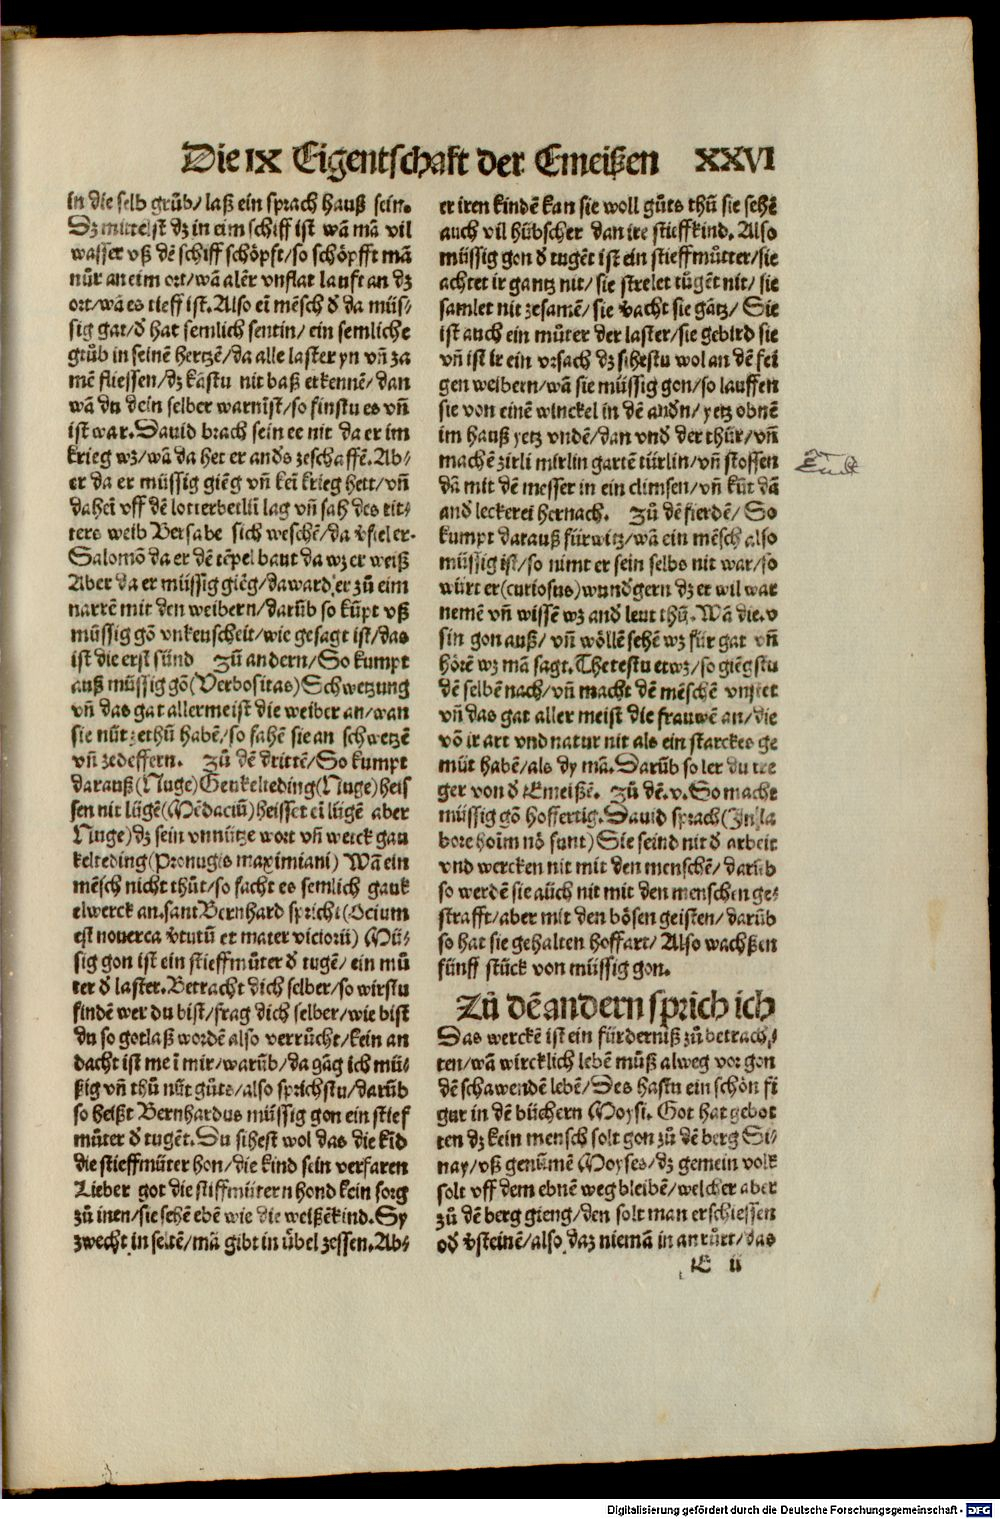 Die IX Eigentschafft der Emeißen XXVI
in die selb grůb/ laß ein sprach hauß sein.
Dz mittelst dz in eim schiff ist wā mā vil
wasser vß dē schiff schöpft/so schöpfft mā
nůr an eim ort/wā aler vnflat laufft an dz
ort/wā es tieff ist. Also ei mēsch d da müs-
sig gat/d hat semlich sentin/ ein semliche
grůb in seinē hertzē/da alle laster yn vñ za
mē fliessen/dz kāstu nit baß erkennē/dan
wā du dein selber warnist/so finstu es vñ
ist war. Dauid brach sein ee nit da er im
krieg wz/wā da het er ands zeschaffē. Ab-
er da er müssig giēg vñ kei krieg hett/vñ
dahei vff dē lotterbetlin lag vñ sah des rit-
ters weib Bersabe sich weschē/da vfiel er.
Salomō da er dē tēpel baut da wz er weiß
Aber da er müssig giēg/da ward er zů eim
narrē mit den weibern/darūb so kūpt vß
müssig gō vnkeuscheit/wie gesagt ist/das
ist die erst sünd Zů andern/So kumpt
auß müssig gō(Verbositas)Schwetzung
vñ das gat allermeist die weiber an/wan
sie nüt zethů habē/so fahē sie an schwetzē
vñ zedeffern. Zů dē drittē/So kumpt
darauß(Nuge)Geukelteding(Nuge)heis
sen nit lügē(Mēdaciū)heisset ei lügē aber
Nuge)dz sein vnnütze wort vñ werck gau
kelteding(Pronugis maximiani) Wā ein
mēsch nicht thůt/so facht es semlich gauk
elwerck an.sant Bernhard spricht(Ocium
est nouerca vtutū et mater victorū) Mü-
sig gon ist ein stieffmůter d tugē/ ein mů
ter d laster. Betracht dich selber/so wirstu
findē wer du bist/frag dich selber/wie bist
du so gotlaß wordē also verrůcht/kein an
dacht ist me i mir/warūb/da gāg ich mü-
ßig vñ thů nüt gůts/also sprichstu/darūb
so heißt Bernhardus müssig gon ein stief
můter d tugēt. Du sihest wol das die kid
die stieffmůter hon/die kind sein verfaren
Lieber got die stiffmůtern hond kein sorg
zů inen/sie sehē ebē wie die weißēkind. Sy
zwecht in seltē/mā gibt in übel zessen. Ab-
er iren kindē kan sie woll gůts thů sie sehē
auch vil hübscher dan ire stieffkind. Also
müssig gon d tugēt ist ein stieffmůtter/sie
achtet ir gantz nit/sie strelet tügēt nit/sie
samlet nit zesamē/sie vacht sie gātz/ Sie
ist auch ein můter der laster/sie gebird sie
vñ ist ir ein vrsach dz sihestu wol an dē fei
gen weibern/wā sie müssig gon/so lauffen
sie von einē winckel in dē andn/yetz obnē
im hauß yetz vndē/dan vnd der thür/vñ
machē zirli mirlin gartē türlin/vñ stossen
dā mit dē messer in ein climsen/vñ kūt dā
and leckerei hernach. Zů dē fierdē/ So
kumpt darauß fürwitz/wā ein mēsch also
müssig ist/so nimt er sein selbs nit war/so
würt er(curiosus)wundgern dz er wil war
nemē vñ wissē wz and leut thů. Wā die.v
sin gon auß/ vñ wöllē sehē wz für gat vñ
hörē wz mā sagt. Thetestu etwz/so giēgstu
dē selbē nach/vñ macht dē mēschē vnstet
vñ das gat aller meist die frauwē an/die
vō ir art vnd natur nit als ein starckes ge
müt habē/als dy mā. Darūb so ler du tre
ger von d Emeißē. Zů dē.v. So macht
müssig gō hoffertig. Dauid sprach(In la
bore hoīm nō sunt) Sie seind nit d arbeit
vnd wercken nit mit den menschē/ darūb
so werdē sie aůch nit mit den menschen ge-
strafft/aber mit den bösen geisten/darūb
so hat sie gehalten hoffart/ Also wachßen
fünff stück von müssig gon.
Zů dē andern sprich ich
Das werckē ist ein fürderniß zů betrach-
ten/wā wircklich lebē můß alweg vor gon
dē schawendē lebē/ Des hastu ein schön fi
gur in dē bůchern Moysi. Got hat gebot
ten dz kein mensch solt gon zů dē berg Si-
nay/vß genūmē Moyses/dz gemein volk
solt vff dem ebnē weg bleibē/welcher aber
zů dē berg gieng/den solt man erschiessen
od vsteinē/also daz niemā in an růrt/das
E ii
Digitalisierung gefördert durch die Deutsche Forschungsgemeinschaft - DFG